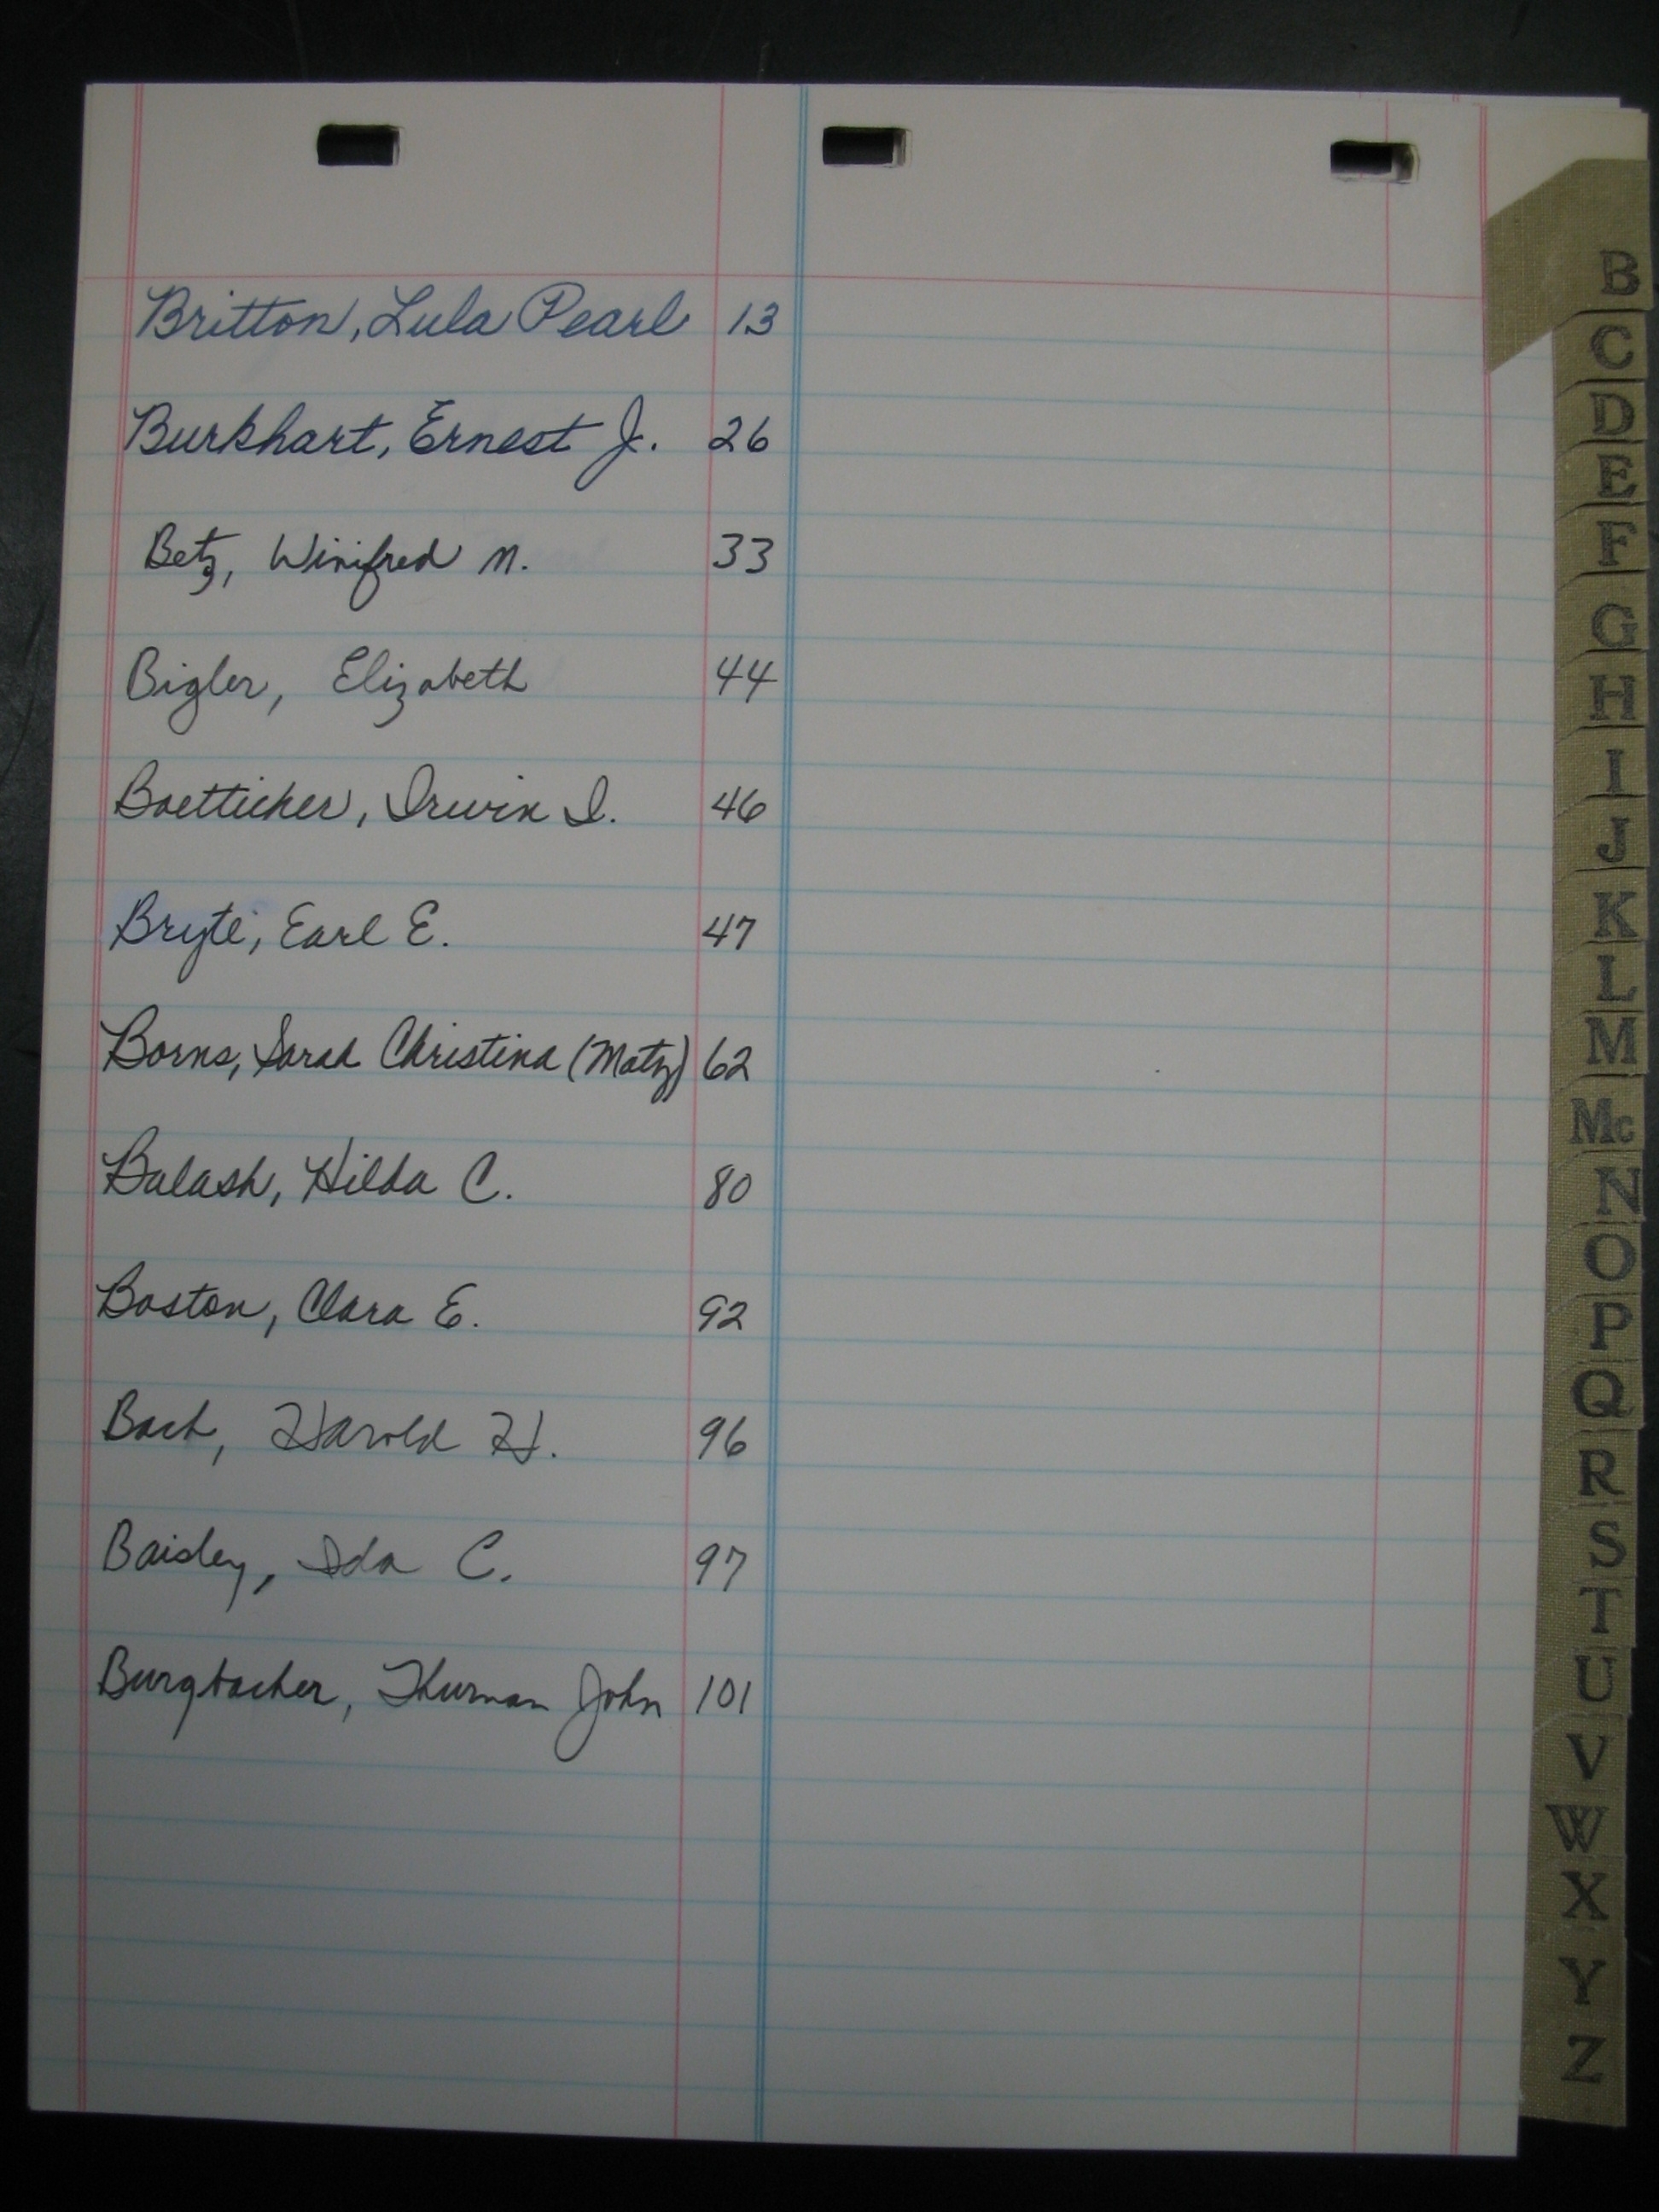 Britton, Lula Pearl 13
Burkhart, Ernest J. 26
Betz, Winifred M. 33
Bigler, Elizabeth 44
Boetticher, Irwin I. 46
Bryte, Earl E. 47
Borns, Sarah Christina (Motz) 62
Balash, Hilda C. 80
Boston, Clara E. 92
Bach, Harold H. 96
Baisley, Ida C. 97
Burgbacher, Thurman John 101
B
C
D
E
F
G
H
I
J
K
L
M
Mc
N
O
P
Q
R
S
T
U
V
W
X
Y
Z